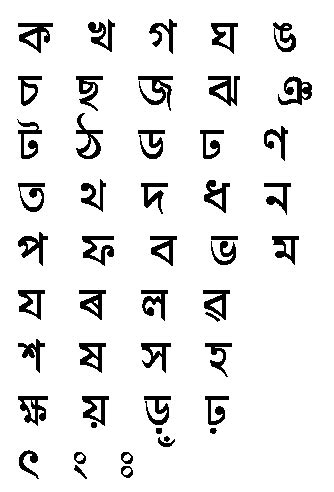 ক খ গ ঘ ঙ
চ ছ জ ঝ ঞ
ট ঠ ড ঢ ণ
ত থ দ ধ ন
প ফ ব ভ ম
য ৰ ল ৱ
শ ষ স হ
ক্ষ য় ড় ঢ়
ৎ ং ঃ ঁ